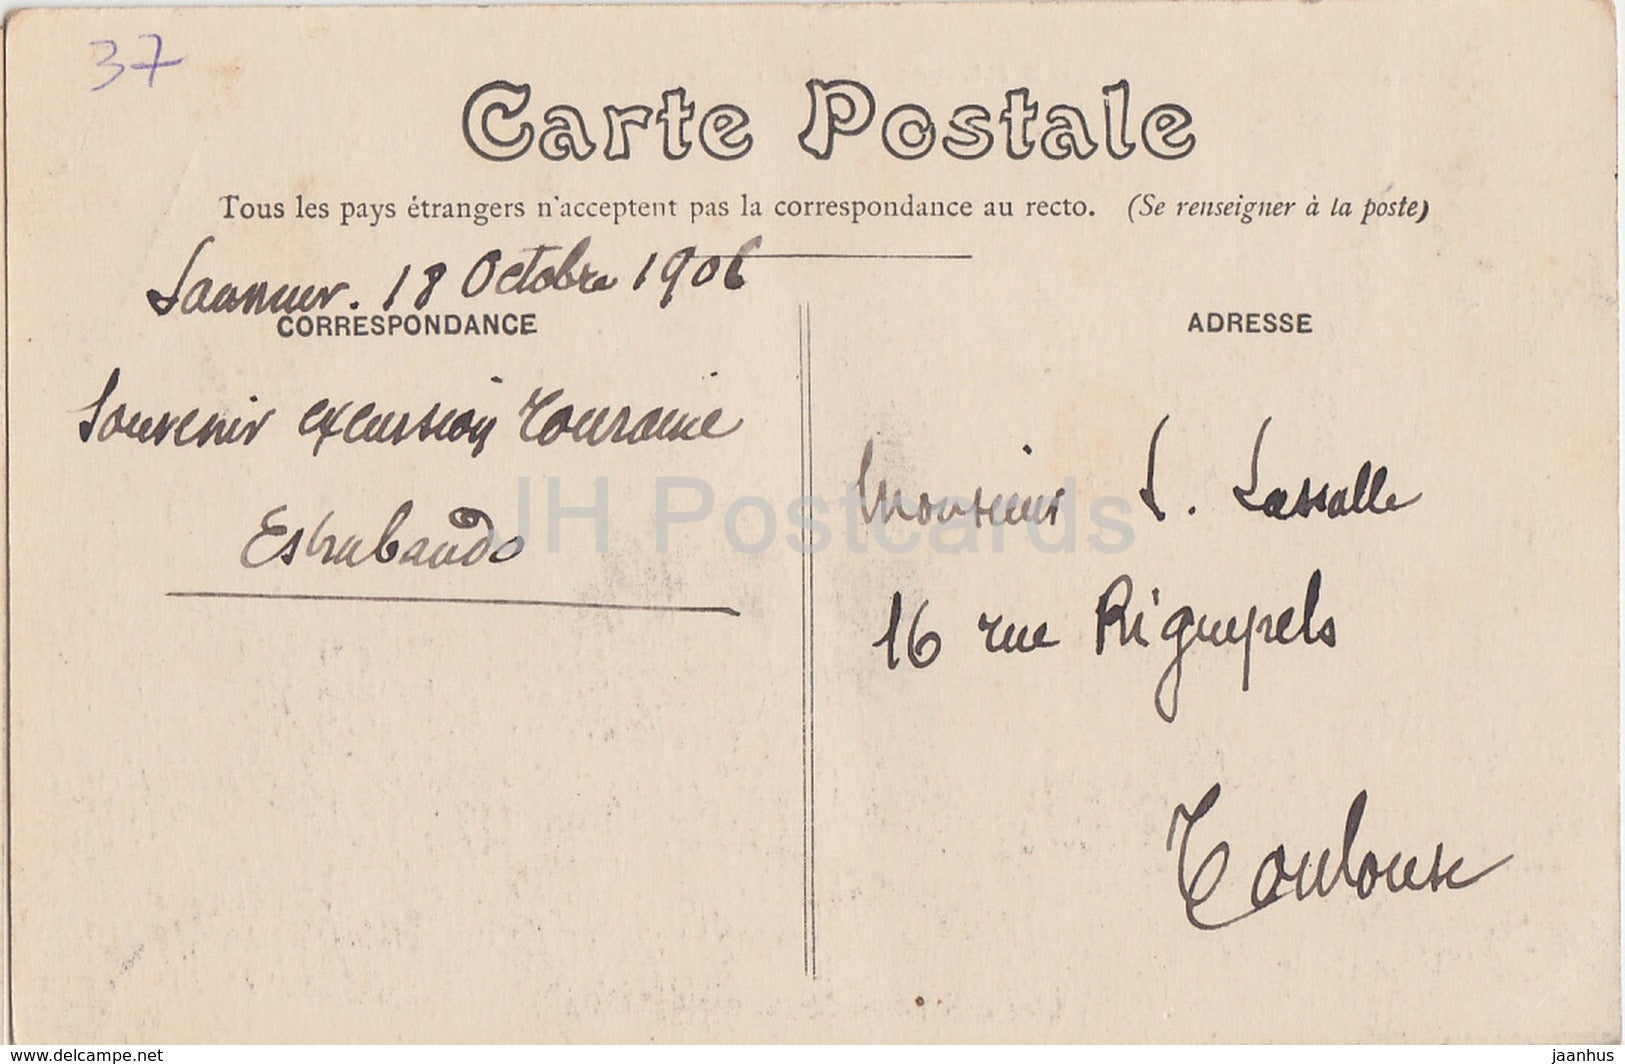 37
Carte Postale
Tous les pays étrangers n'acceptent pas la correspondance au recto. (Se renseigner à la poste)
Saumur. 18 Octobre 1906
CORRESPONDANCE
Souvenir excursion Touraine
Estrabaudo
ADRESSE
Monsieur L. Lassalle
16 rue Riguepels
Toulouse
JH Postcards
www.delcampe.net
jaanhus